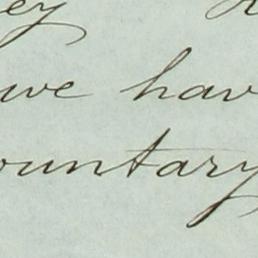 ey
we hav
ountary